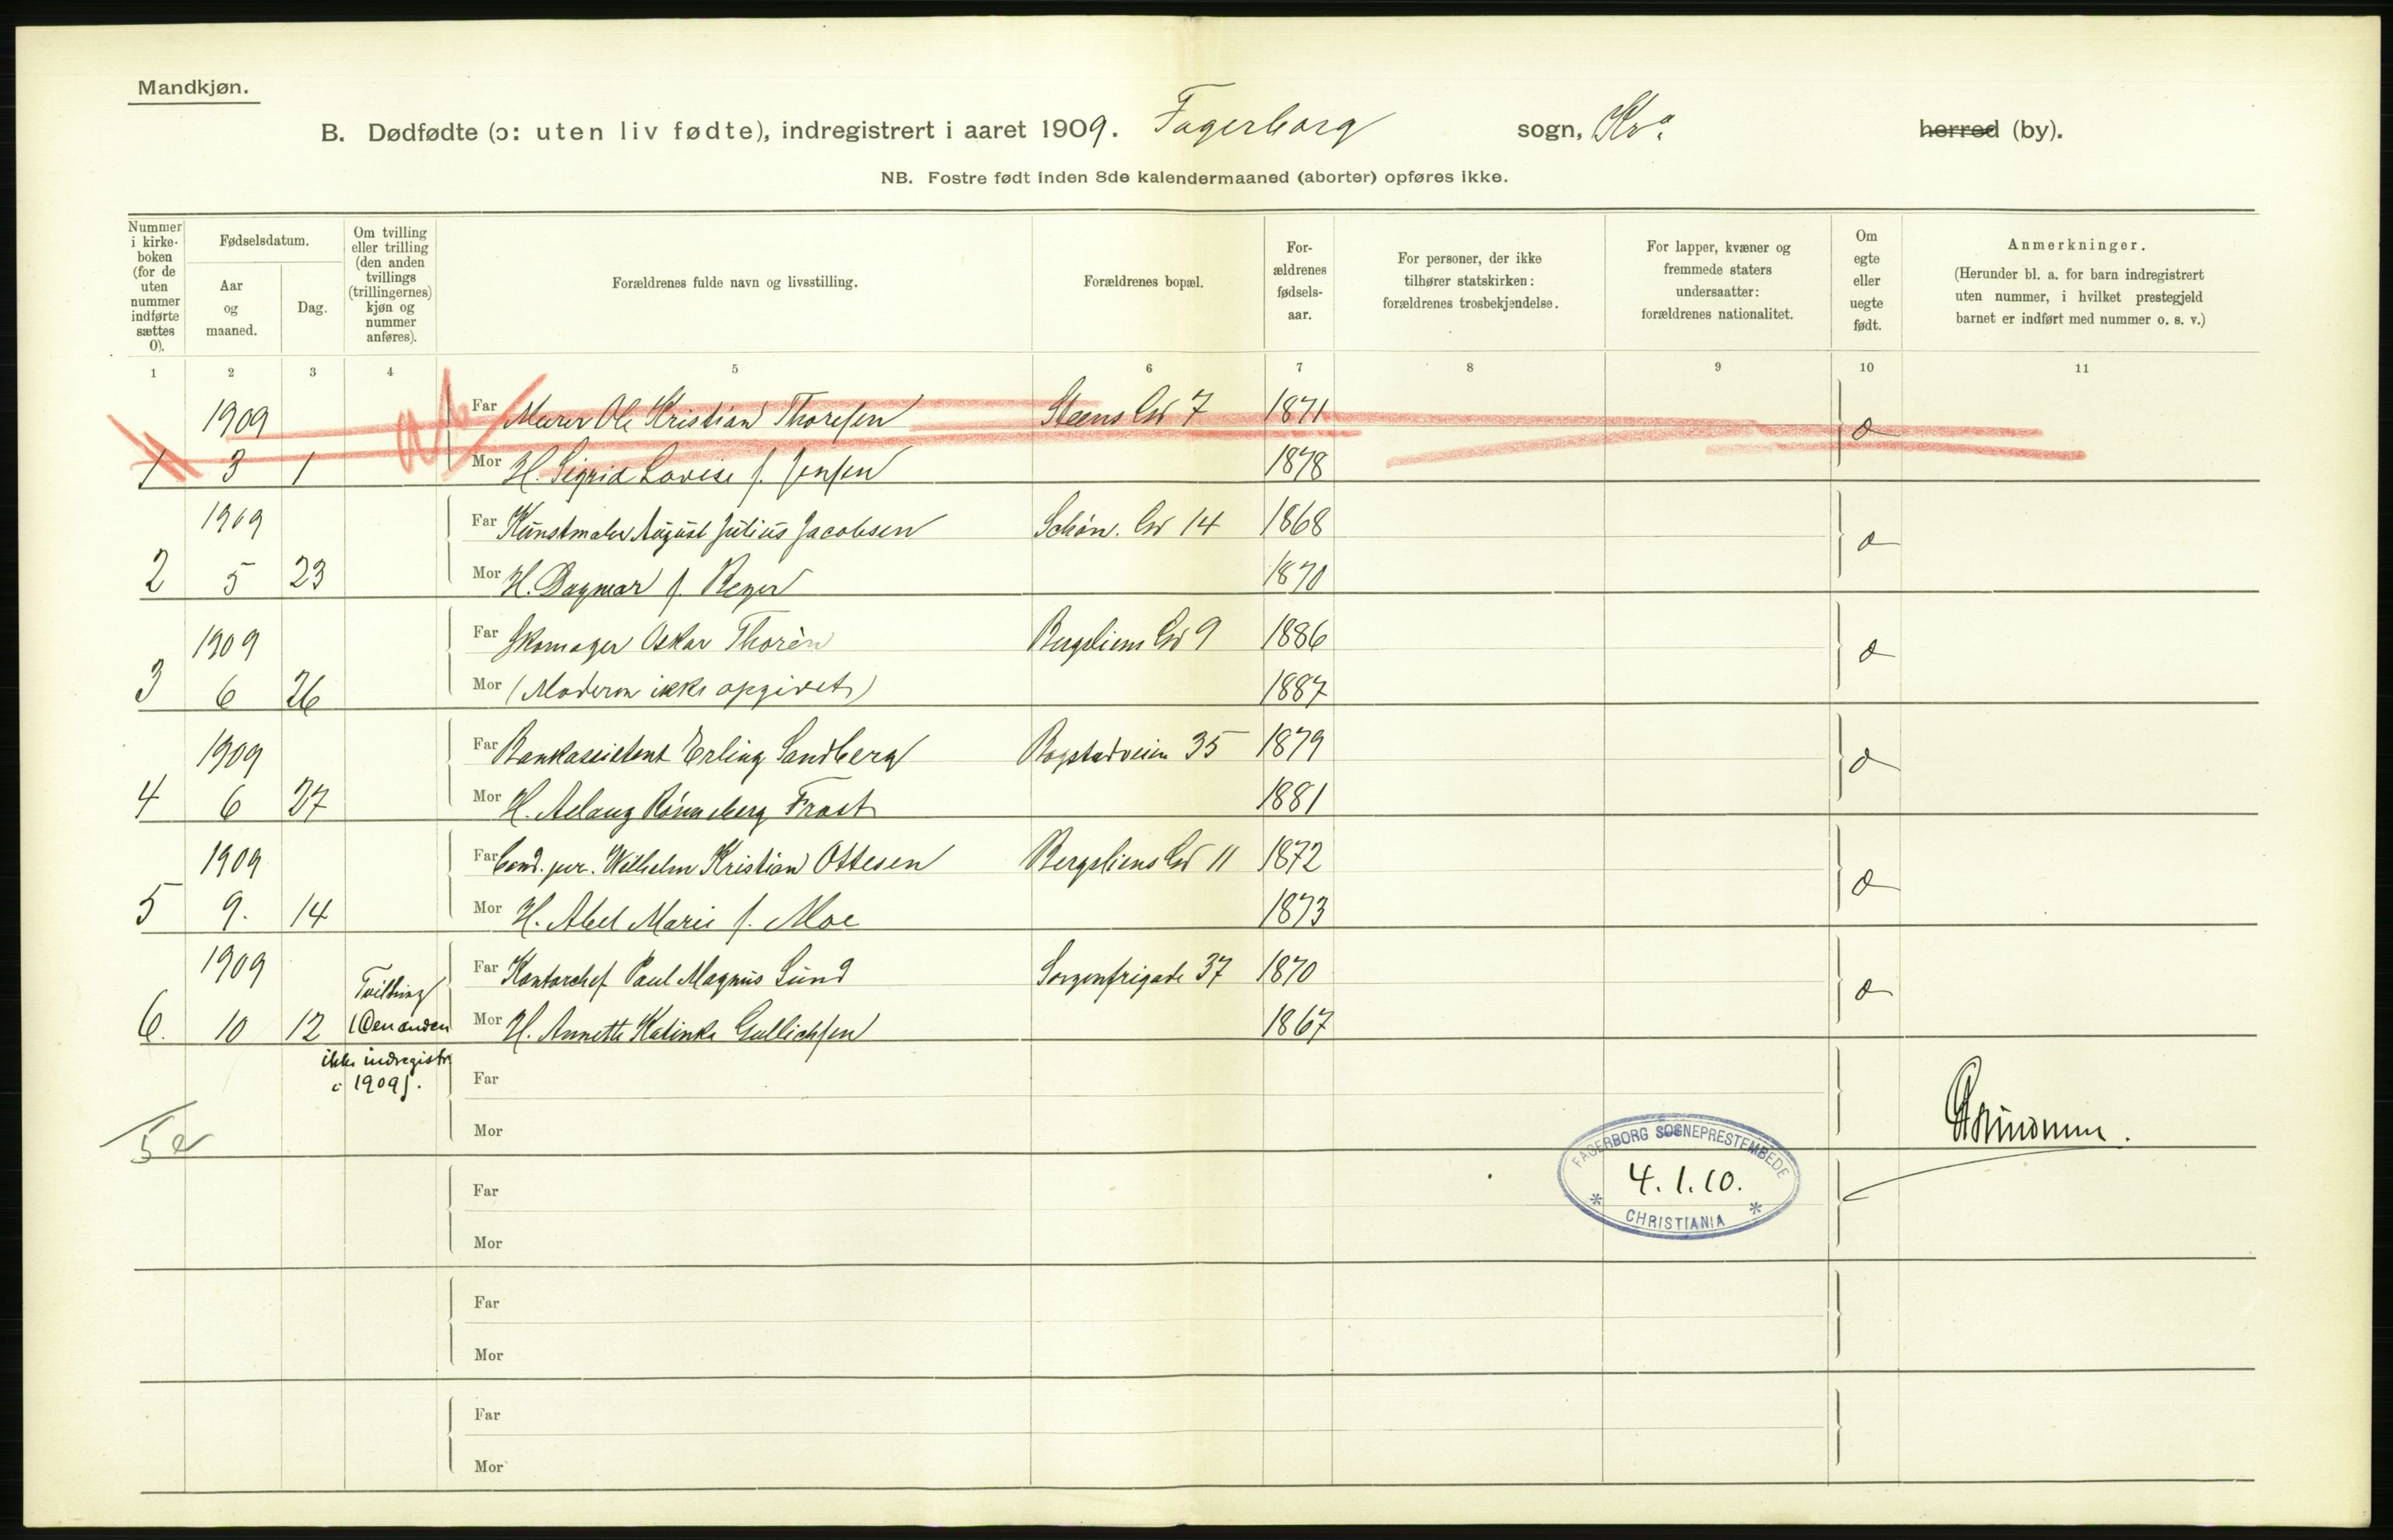 Mandkjøn.
B. Dødfødte (ɔ: uten liv fødte), indregistrert i aaret 1909. Fagerborg sogn, Kra. herred (by).
NB. Fostre født inden 8de kalendermaaned (aborter) opføres ikke.
Nummer i kirke-boken (for de uten nummer indførte sættes 0).
Fødselsdatum.
Aar og maaned.
Dag.
Om tvilling eller trilling (den anden tvillings (trillingernes) kjøn og nummer anføres).
Forældrenes fulde navn og livsstilling.
Forældrenes bopæl.
For-ældrenes fødsels-aar.
For personer, der ikke tilhører statskirken: forældrenes trosbekjendelse.
For lapper, kvæner og fremmede staters undersaatter: forældrenes nationalitet.
Om egte eller uegte født.
Anmerkninger.
(Herunder bl. a. for barn indregistrert uten nummer, i hvilket prestegjeld barnet er indført med nummer o. s. v.)
1 2 3 4 5 6 7 8 9 10 11
1909 Far Murer Ole Kristian Thoresen Steens Gd 7 1871
1 3 1 Mor H. Sigrid Lovise f. Jensen 1878
1909 Far Kunstmaler August Julius Jacobsen Schøn. Gd 14 1868
2 5 23 Mor H. Dagmar f. Reger 1870
1909 Far Skomager Oskar Thorèn Bergsliens Gd 9 1886
3 6 26 Mor (Moderen ikke opgivet) 1887
1909 Far Bankassistent Erling Sandberg Bogstadveien 35 1879
4 6 27 Mor H. Aslaug Rønneberg Frost 1881
1909 Far Cand. jur. Wilhelm Kristian Ottesen Bergsliens Gd 11 1872
5 9. 14 Mor H. Abel Marie f. Moe 1873
1909 Far Kontorchef Paul Magnus Lund Sorgenfrigade 37 1870
6. 10 12 Tvilling (Den anden Mor H. Annette Katinka Gullichsen 1867
ikke indregistr.
i 1909).
Far
Mor
5 e
FAGERBORG SOGNEPRESTEMBEDE
4.1.10.
CHRISTIANIA
Far
Mor
Far
Mor
Far
Mor